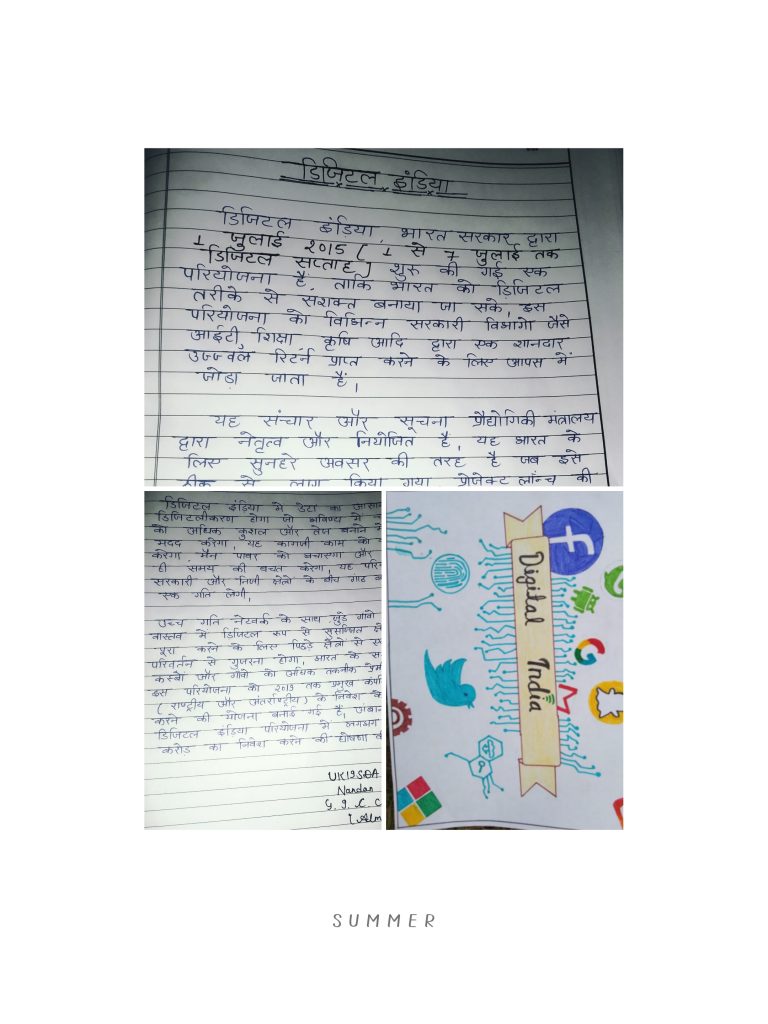 डिजिटल इंडिया
डिजिटल इंडिया, भारत सरकार द्वारा
1 जुलाई 2015 ( 1 से 7 जुलाई तक
डिजिटल सप्ताह) शुरु की गई एक
परियोजना हैं, ताकि भारत को डिजिटल
तरीके से सशक्त बनाया जा सके, इस
परियोजना को विभिन्न सरकारी विभागो जैसे
आईटी, शिक्षा, कृषि आदि द्वारा एक शानदार
उज्ज्वल रिटर्न प्राप्त करने के लिए आपस में
जोड़ा जाता हैं,
यह संचार और सूचना प्रौद्योगिकी मंत्रालय
द्वारा नेतृत्व और नियोजित है, यह भारत के
लिए सुनहरे अवसर की तरह है जब इसे
ठीक से लागू किया गया, प्रोजेक्ट लॉन्च की
डिजिटल इंडिया में डेटा का
डिजिटलीकरण होगा जो भविष्य में
को अधिक कुशल और तेज बनाने
मदद करेगा, यह कागजी काम को
करेगा, मैन पावर को बचाएगा और
ही समय की बचत करेगा, यह
सरकारी और निजी क्षेत्रो के बीच गाठ
एक गति लेगी,
उच्च गति नेटवर्क के साथ जुड़े गांवो
वास्तव में डिजिटल रूप से सुसज्जित
पूरा करने के लिए पिछड़े क्षेत्रो से
परिवर्तन से गुजरना होगा, भारत के
कस्बों और गांवो को अधिक तकनीक
इस परियोजना को 2019 तक प्रमुख
( राष्ट्रीय और अंतर्राष्ट्रीय ) के निवेश
करने की योजना बनाई गई हैं,
डिजिटल इंडिया परियोजना में लगभग
करोड का निवेश करने की घोषणा
UK19SDA
Nandan
G. I. C. C
(Alm
Digital India
SUMMER